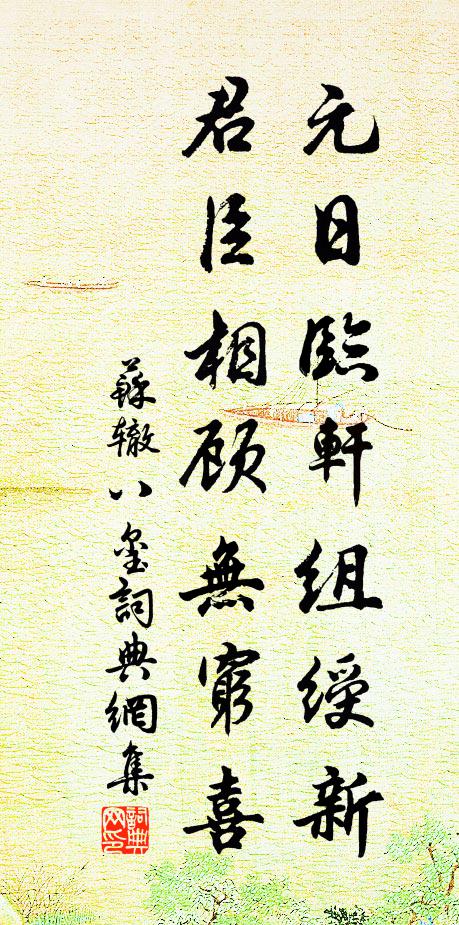 元日臨軒組綬新
君臣相顾無窮喜
蘇辙八璽詞典網集
詞典网印